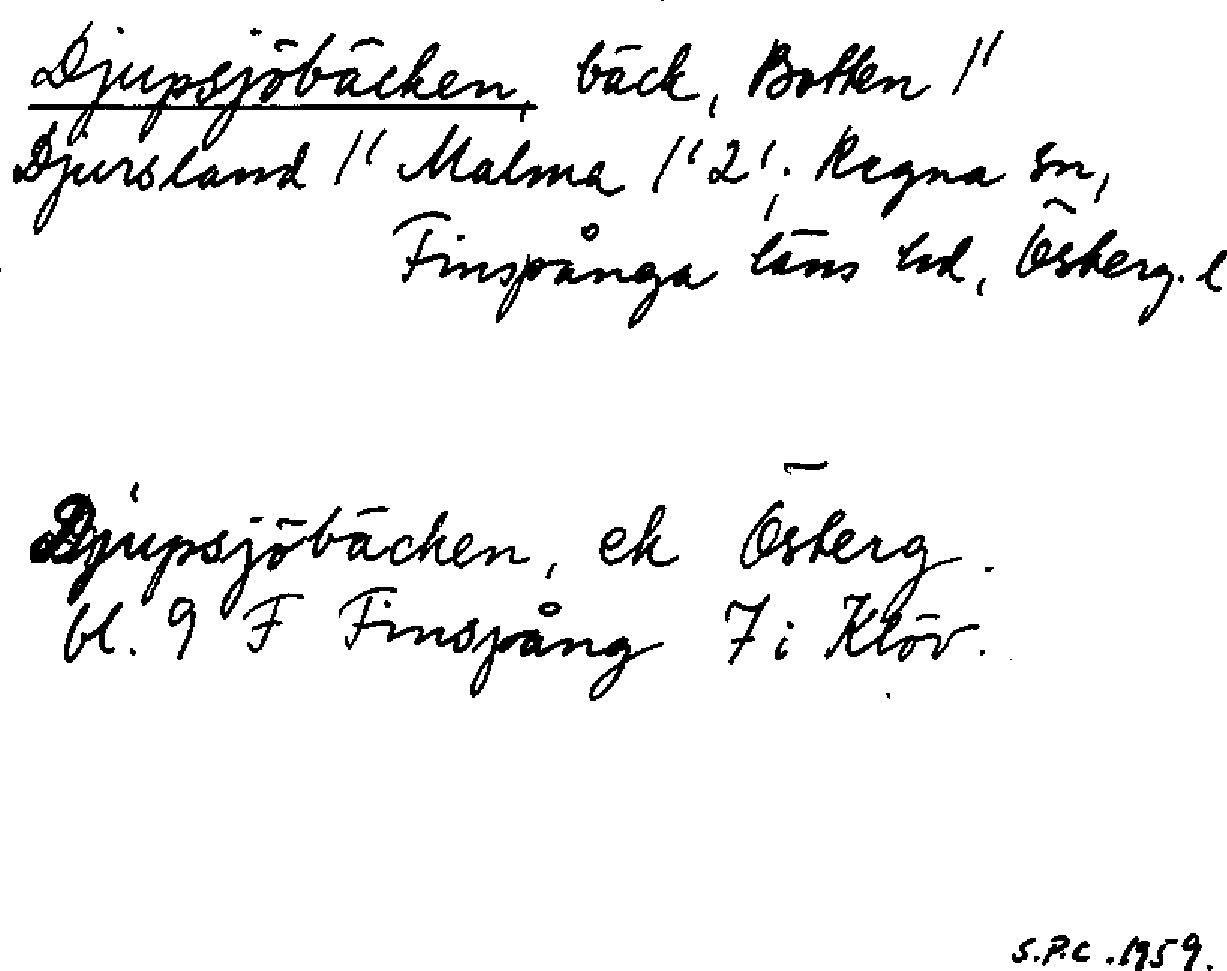 Djupsjöbäcken, bäck, Botten 1/1
Djursland 1/1 Malma 1/1 2/1; Regna sn,
Finspånga läns hd, Österg. l
Djupsjöbäcken, ek Österg.
bl. 9 F Finspång 7 i Klöv.
S.P.C. 1959.